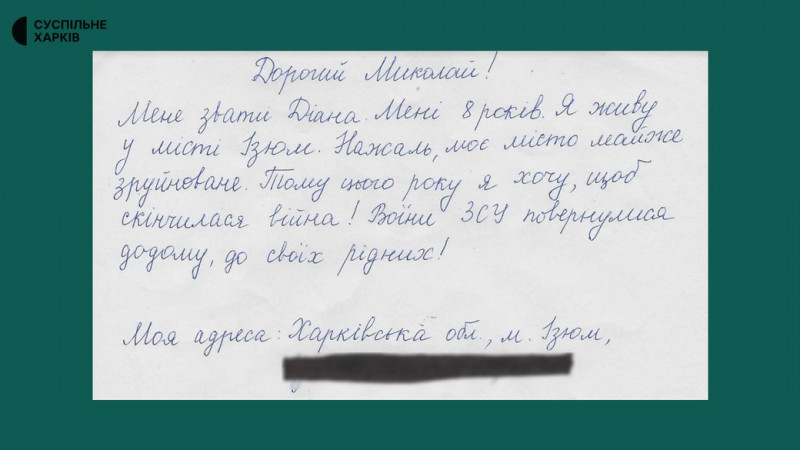 СУСПІЛЬНЕ
ХАРКІВ
Дорогий Миколай!
Мене звати Діана. Мені 8 років. Я живу
у місті Ізюм. Нажаль, моє місто майже
зруйноване. Тому цього року я хочу, щоб
скінчилася війна! Воїни ЗСУ повернулися
додому, до своїх рідних!
Моя адреса: Харківська обл., м. Ізюм,